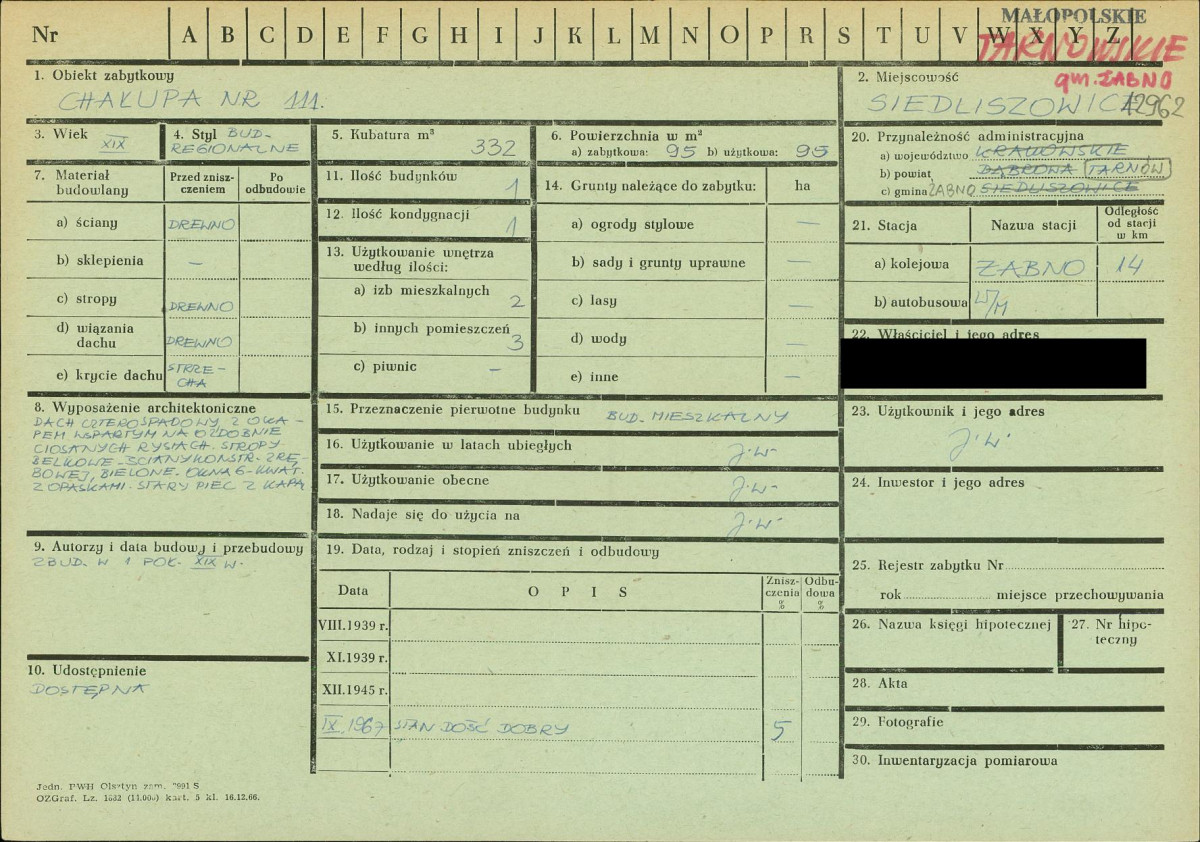 Nr A B C D E F G H I J K L M N O P R S T U V W X Y Z
MAŁOPOLSKIE
TARNOWSKIE
gm. ŻABNO
1. Obiekt zabytkowy
CHAŁUPA NR 111.
2. Miejscowość
SIEDLISZOWICE
12962
3. Wiek
XIX
4. Styl BUD-
REGIONALNE
5. Kubatura m³
332
6. Powierzchnia w m²
a) zabytkowa: 95 b) użytkowa: 95
20. Przynależność administracyjna
a) województwo KRAKOWSKIE
b) powiat DĄBROWA TARNÓW
c) gmina ŻABNO SIEDLISZOWICE
7. Materiał budowlany
Przed znisz-
czeniem
Po
odbudowie
a) ściany DREWNO
b) sklepienia –
c) stropy DREWNO
d) wiązania
dachu DREWNO
e) krycie dachu STRZE-
CHA
11. Ilość budynków
1
12. Ilość kondygnacji
1
13. Użytkowanie wnętrza
według ilości:
a) izb mieszkalnych 2
b) innych pomieszczeń 3
c) piwnic –
14. Grunty należące do zabytku: ha
a) ogrody stylowe –
b) sady i grunty uprawne –
c) lasy –
d) wody –
e) inne –
21. Stacja Nazwa stacji Odległość
od stacji
w km
a) kolejowa ŻABNO 14
b) autobusowa W/M
22. Właściciel i jego adres
8. Wyposażenie architektoniczne
DACH CZTEROSPADOWY Z OKA-
PEM WSPARTYM NA OZDOBNIE
CIOSANYCH RYSIACH. STROPY
BELKOWE. ŚCIANY KONSTR. ZRĘ-
BOWEJ, BIELONE. OKNA 6-KWAT.
Z OPASKAMI. STARY PIEC Z KAPĄ
15. Przeznaczenie pierwotne budynku BUD. MIESZKALNY
16. Użytkowanie w latach ubiegłych J.W.
17. Użytkowanie obecne J.W.
18. Nadaje się do użycia na J.W.
23. Użytkownik i jego adres
J.W.
24. Inwestor i jego adres
9. Autorzy i data budowy i przebudowy
ZBUD. W 1 POŁ. XIX W.
19. Data, rodzaj i stopień zniszczeń i odbudowy
Data OPIS Znisz-
czenia
%
Odbu-
dowa
%
VIII.1939 r.
XI.1939 r.
XII.1945 r.
IX.1967 STAN DOŚĆ DOBRY 5
25. Rejestr zabytku Nr
rok miejsce przechowywania
26. Nazwa księgi hipotecznej
27. Nr hipo-
teczny
10. Udostępnienie
DOSTĘPNA
28. Akta
29. Fotografie
30. Inwentaryzacja pomiarowa
Jedn. PWH Olsztyn zam. 7991 S
OZGraf. Lz. 1832 (11.000) kart. 5 kl. 16.12.66.